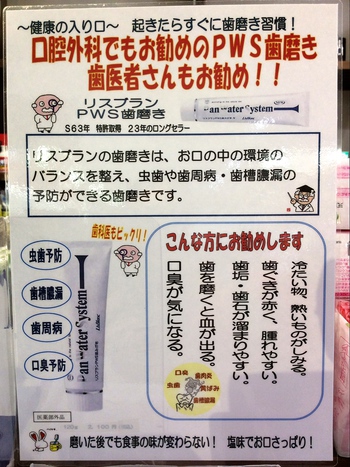 ～健康の入り口～ 起きたらすぐに歯磨き習慣！
口腔外科でもお勧めのPWS歯磨き
歯医者さんもお勧め！！
リスブラン
PWS歯磨き
S63年 特許取得 23年のロングセラー
Pan Water System
リスブランの歯磨きは、お口の中の環境の
バランスを整え、虫歯や歯周病・歯槽膿漏の
予防ができる歯磨きです。
歯科医もビックリ！
虫歯予防
歯槽膿漏
歯周病
口臭予防
Pan Water System
医薬部外品
こんな方にお勧めします
冷たい物、熱いものがしみる。
歯ぐきが赤く、腫れやすい。
歯垢・歯石が溜まりやすい。
歯を磨くと血が出る。
口臭が気になる。
口臭
歯肉炎
虫歯
黄ばみ
歯槽膿漏
磨いた後でも食事の味が変わらない！ 塩味でお口さっぱり！